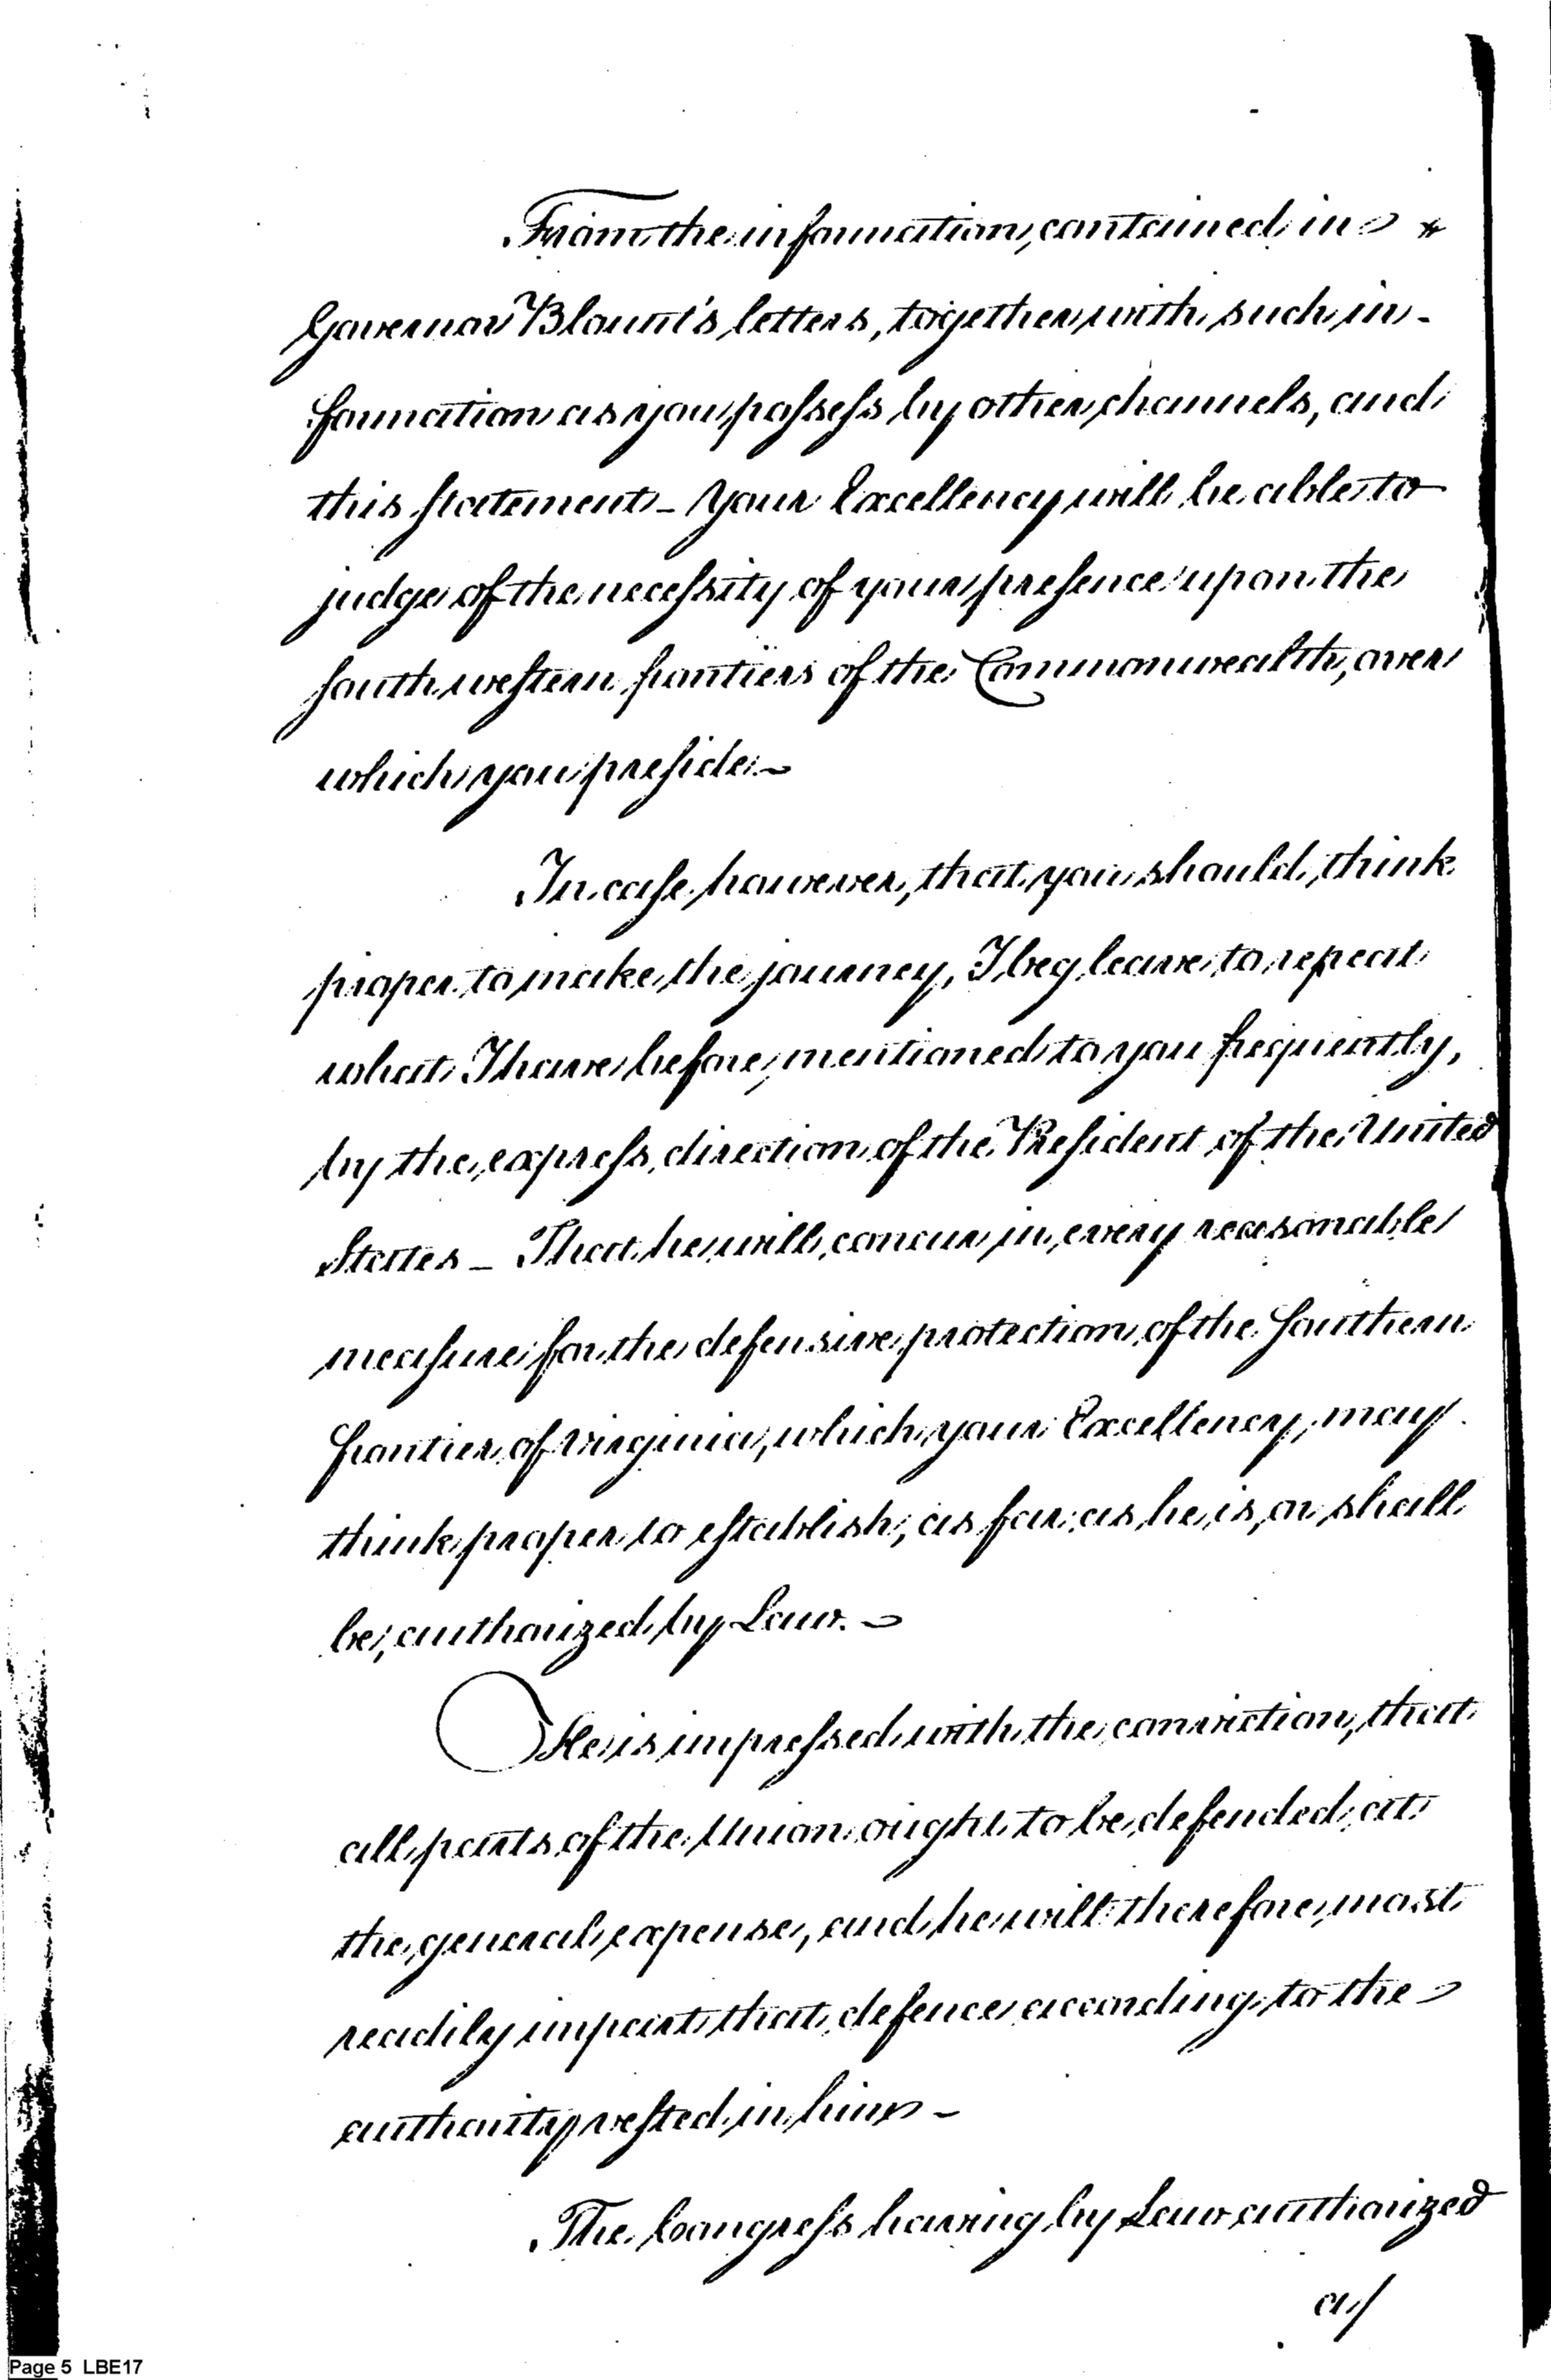 From the information, contained in
Governor Blount's letters, together with such in-
formation as you possess by other channels, and
this statement - Your Excellency will be able to
judge of the necessity of your presence upon the
south western frontiers of the Commonwealth, over
which you preside. -
In case, however, that you should, think
proper to make the journey, I beg leave to repeat
what I have before, mentioned to you frequently,
by the express, direction of the President of the United
States - That he will, concur in, every reasonable
measure for the defensive protection of the Southern
frontier of Virginia, which your Excellency, may
think proper to establish, as far as he is, or shall
be, authorized by Law. -
He is impressed with the conviction, that
all parts of the Union ought to be defended at
the general expense, and he will therefore, most
readily impart that defence according to the
authority vested in him -
The Congress having by Law authorized
a/
Page 5 LBE17